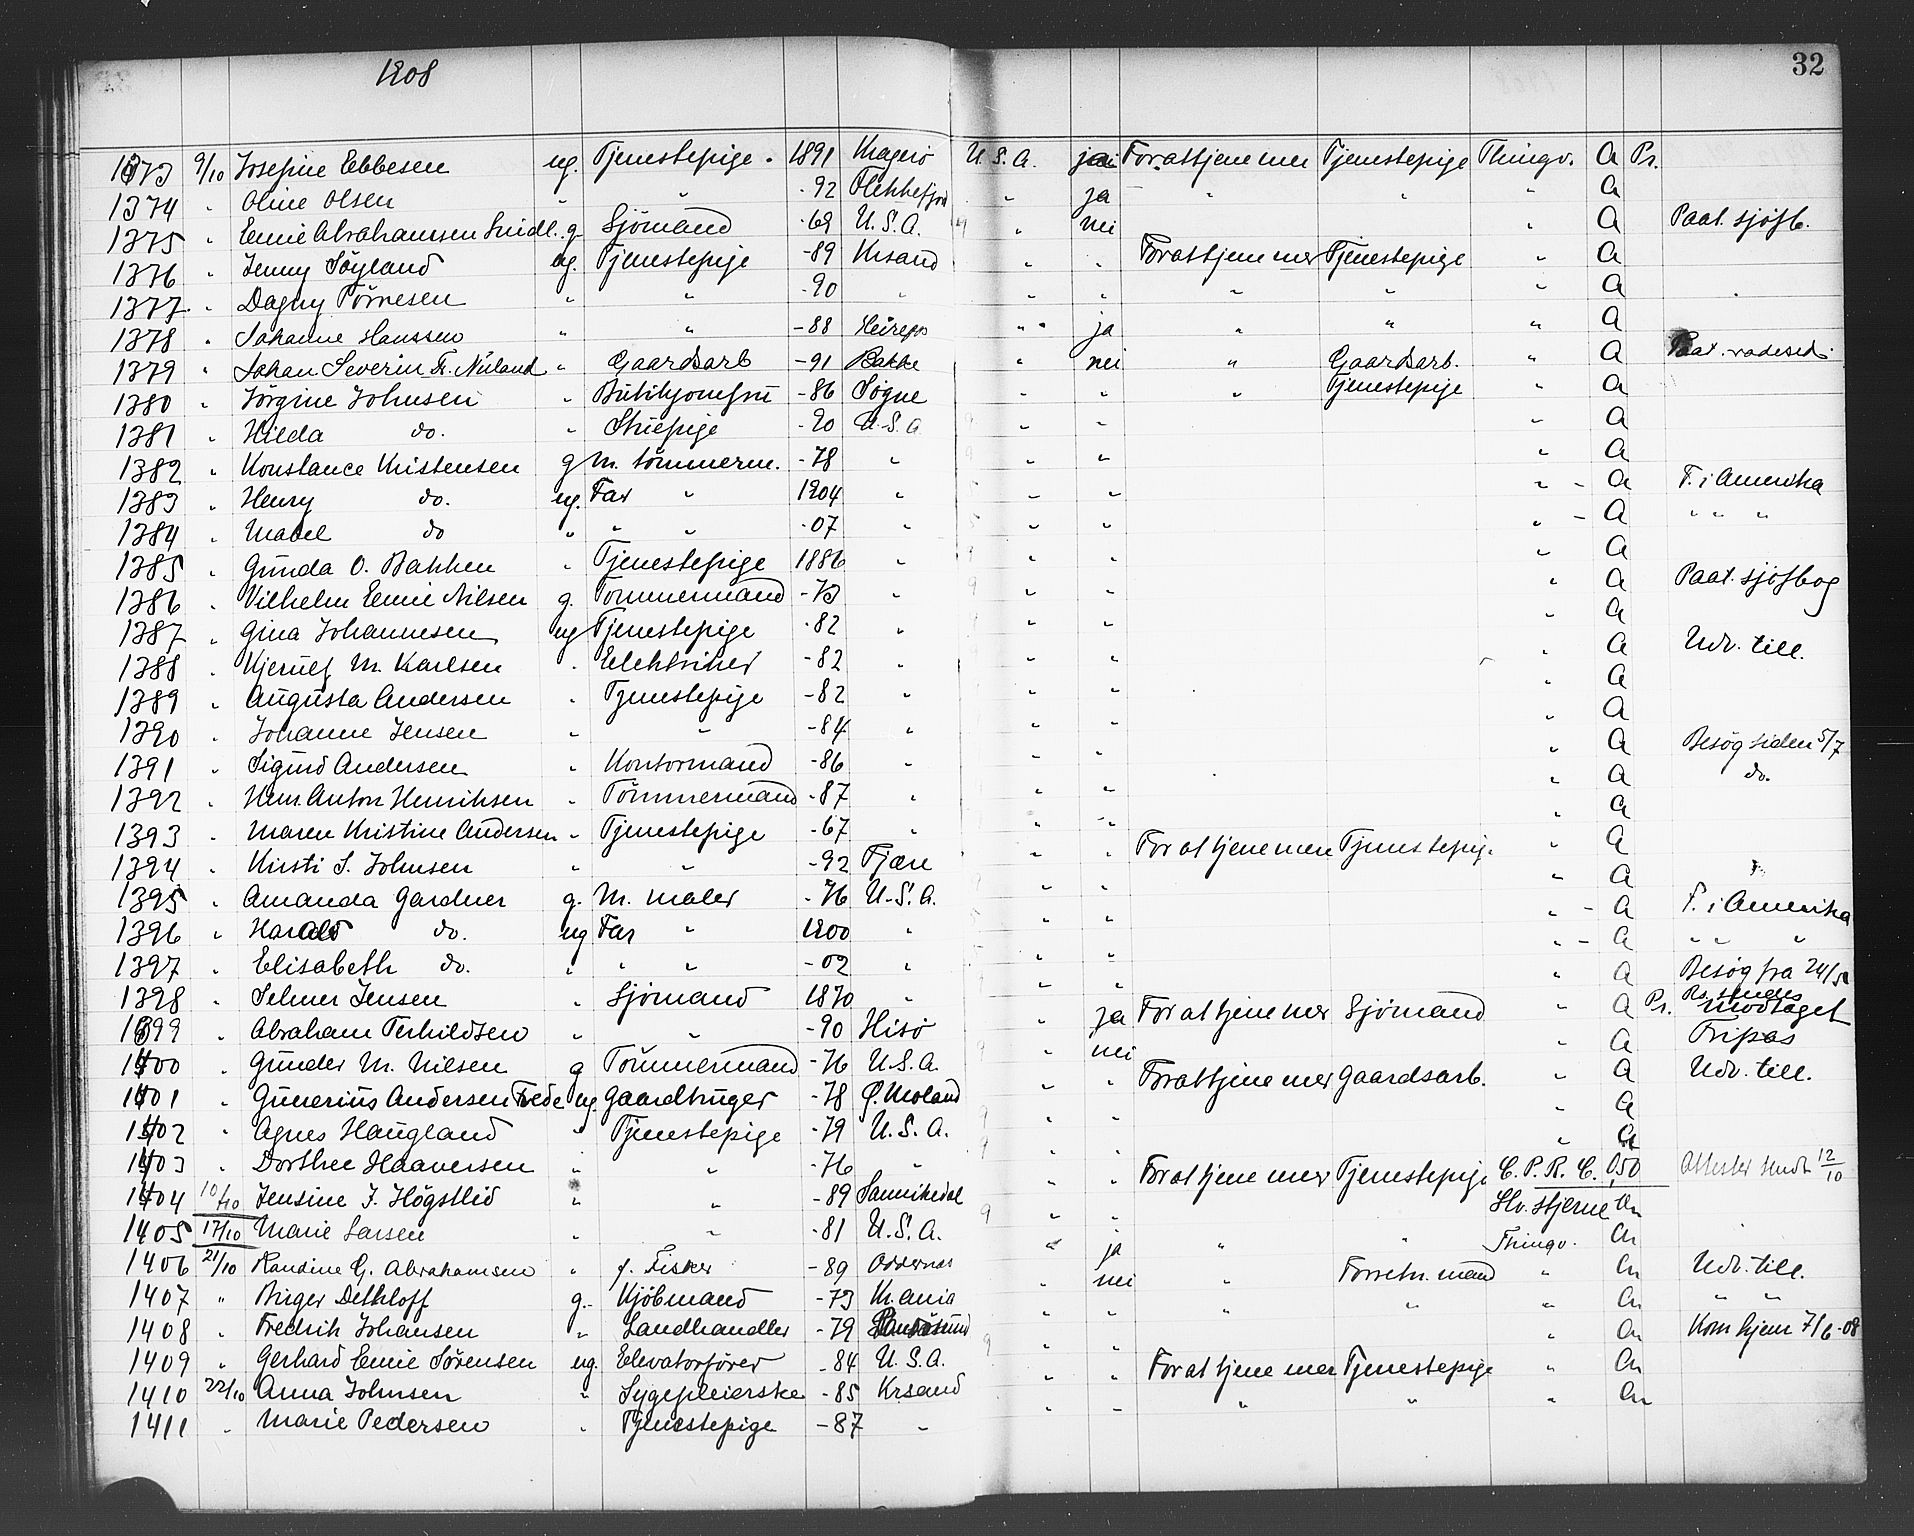 1908
32
1373 9/10 Josefine Ebbesen ug. Tjenestepige 1891 Kragerö U.S.A. ja For at tjene mer Tjenestepige Thingv. A Pr.
1374 " Oline Olsen " " -92 Flekkefjord " ja " " " A
1375 " Emil Abrahamsen Smidt g. Sjömand -69 U.S.A. " nei " A Paat. sjöfb.
1376 " Jenny Söyland ug. Tjenestepige -89 Krsand " " For at tjene mer Tjenestepige " A
1377 " Dagny Törnesen " " -90 " " " " " " A
1378 " Johanne Hanssen " " -88 " ja " " " A
1379 " Johan Severin Fr. Nuland " Gaardsarb -91 Bakke " nei " Gaardsarb. " A Paat.
1380 " Jörgine Johnsen " Butikjomfru -86 Sögne " " " Tjenestepige " A
1381 " Hilda do. " Stuepige -90 U.S.A " " " A
1382 " Konstance Kristensen g M. tömmerm. -78 " " " " A
1383 " Henry do. ug. Far " 1904 " " " " - A F. i Amerika
1384 " Mabel do " " " -07 " " " " - A " " "
1385 " Gunda O. Bakken " Tjenestepige 1886 " " " " A
1386 " Vilhelm Emil Nilsen g. Tömmermand -73 " " " " A Paat. sjöfbog
1387 " Gina Johannesen ug Tjenestepige -82 " " " " A
1388 " Kjerulf M. Karlsen " Elektriker -82 " " " " A Udv. till.
1389 " Augusta Andersen " Tjenestepige -82 " " " " A
1390 " Johanne Jensen " " -84 " " " " A
1391 " Sigurd Andersen " Kontormand -86 " " " " A Besög siden 5/7
1392 " Anton Henriksen " Tömmermand -87 " " " " A do.
1393 " Maren Kristine Andersen " Tjenestepige -67 " " " A
1394 " Kirsti S. Johnsen " " -92 Fjære " " For at tjene mere Tjenestepig. " A
1395 " Amanda Gardner g. M. maler -76 U.S.A. " " " A
1396 " Harald do. ug Far " 1900 " " " " - A F. i Amerika
1397 " Elisabeth do. " " " -02 " " " " - A " " "
1398 " Selmer Jensen " Sjömand 1870 " " " " A Besög fra 24/5
1399 " Abraham Terkildsen " " -90 Hisö " ja For at tjene mer Sjömand " A Pr. modtaget
1400 " Gunder M. Nilsen g Tömmermand -76 U.S.A. " nei " A Fripas
1401 " Gunerius Andersen Frede ug. Gaardbruger -78 Ø. Moland " " For at tjene mer Gaardsarb. " A Udv. till.
1402 " Agnes Haugland " Tjenestepige -79 U.S.A. " " " A
1403 " Dorthee Haaversen " " -76 " " " " A
1404 10/10 Jensine J. Högstlid " " -89 Sannikedal " " For at tjene mer Tjenestepige C.P.R.C. 050 Attester sendt 12/10
1405 17/10 Marie Larsen " " -81 U.S.A. " " Skv. stjerne An
1406 21/10 Randine G. Abrahamsen " f. Fisker -89 Oddernes " ja " " Thingv. An
1407 " Birger Dethloff g. Kjöbmand -73 Kr.ania " nei " Forretn. mand " An Udv. till.
1408 " Fredrik Johansen " Landhandler -79 " " " " " An " "
1409 " Gerhard Emil Sörensen ug. Elevatorförer -84 U.S.A. " " " An Kom hjem 7/6-08
1410 22/10 Anna Johnsen " Sygepleierske -85 Krsand " " For at tjene mer Tjenestepige " An
1411 " Marie Pedersen " Tjenestepige -87 " " " " " " An